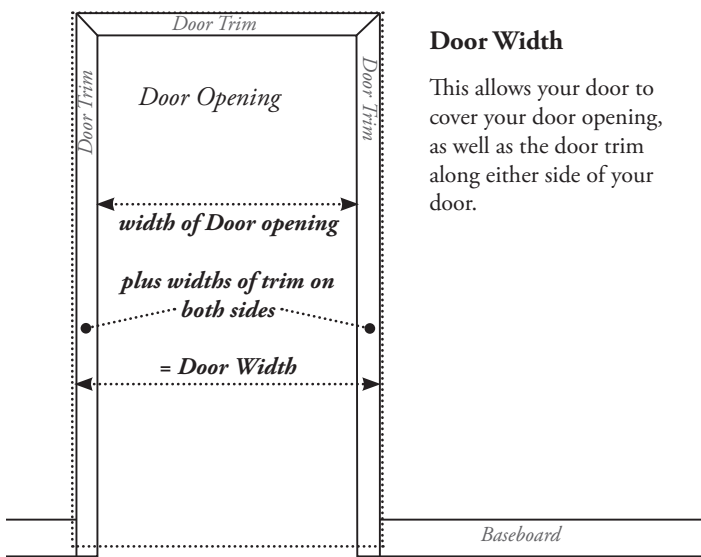 Door Trim
Door Trim
Door Opening
Door Trim
width of Door opening
plus widths of trim on
both sides
= Door Width
Door Width
This allows your door to
cover your door opening,
as well as the door trim
along either side of your
door.
Baseboard